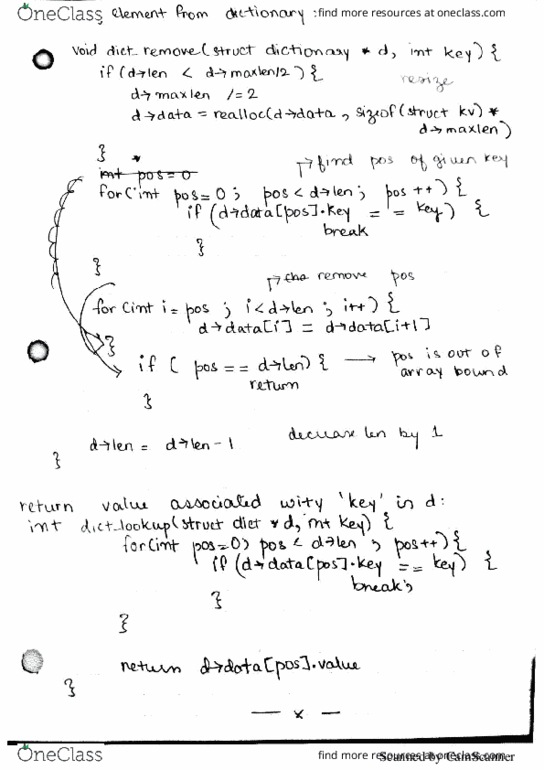 OneClass element from dictionary : find more resources at oneclass.com
void dict_remove(struct dictionary * d, int key) {
if (d→len < d→maxlen/2) { resize
d→maxlen /= 2
d→data = realloc(d→data, sizeof(struct kv) *
d→maxlen)
}
*
int pos = 0 find pos of given key
for (int pos = 0 ; pos < d→len ; pos ++) {
if (d→data[pos].key = = key) {
break
}
}
the remove pos
for (int i = pos ; i < d→len ; i++) {
d→data[i] = d→data[i+1]
}
if ( pos == d→len) { → pos is out of
return array bound
}
d→len = d→len - 1 decrease len by 1
}
return value associated wity 'key' in d:
int dict_lookup(struct dict * d, int key) {
for (int pos=0; pos < d→len ; pos++) {
if (d→data[pos].key == key) {
break;
}
}
return d→data[pos].value
}
— x —
OneClass find more resources at oneclass.com
Scanned by CamScanner